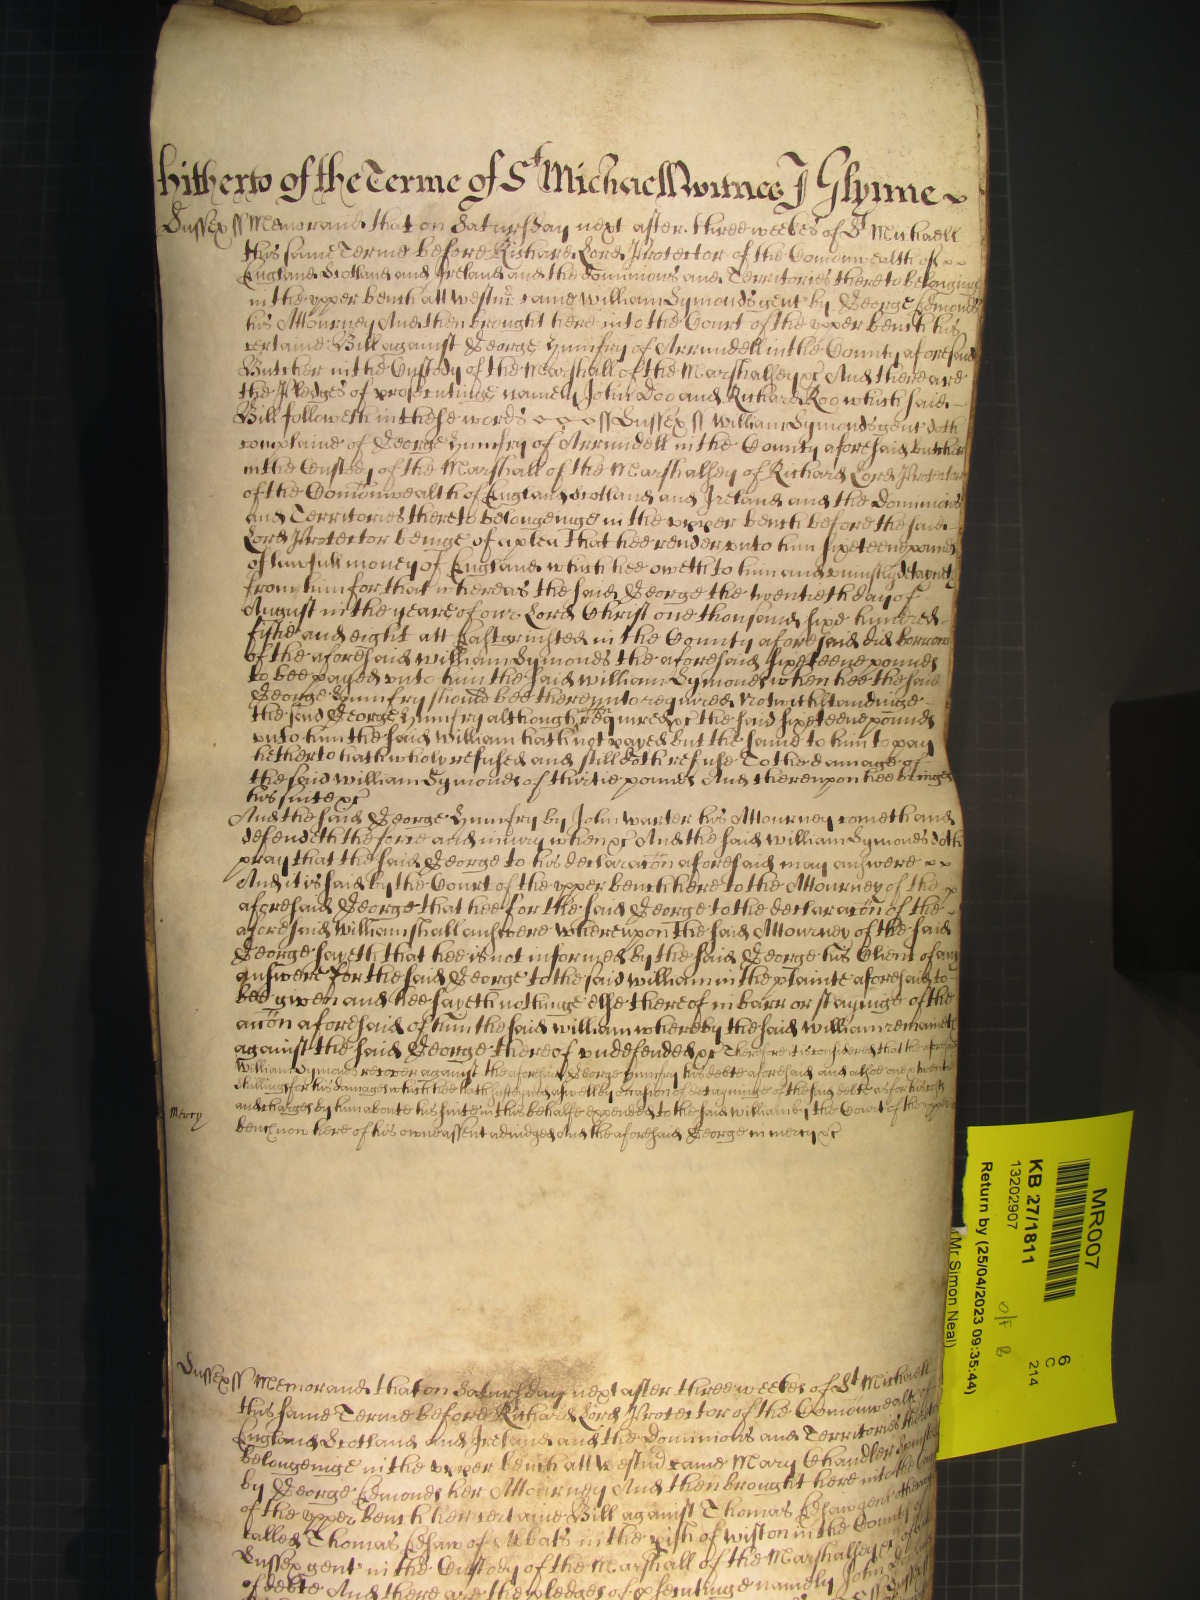 hitherto of the Terme of St Michaell witnes J Glynne
Sussex ss Memorand that on Saturday next after three weekes of St Michaell
this same Terme before Richard Lord Protector of the Comonwealth of
England Scotland and Ireland and the dominions and Territories thereto belonging
in the upper bench att Westmr came William Symonds gent by George Edmonds
his Attourney And then brought here into the Court of the upper bench his
certaine Bill against George Humfry of Arrundell in the County aforesaid
Butcher in the Custody of the Marshall of the Marshalsey &c And there are
the Pledges of prosecutinge namely John Doo and Richard Roo which said
Bill followeth in these words ss Sussex ss William Symonds gent doth
complaine of George Humfry of Arrundell in the County aforesaid butcher
in the Custody of the Marshall of the Marshalsey of Richard Lord Protector
of the Comonwealth of England Scotland and Ireland and the Dominions
and Territories thereto belongeinge in the upper bench before the said
Lord Protector beinge of a plea that hee render unto him sixeteene pounds
of lawfull money of England which hee oweth to him and uniustly detayneth
from him for that whereas the said George the twentieth day of
August in the yeare of our Lord Christ one thousand sixe hundred
fiftie and eight att Eastgrinsted in the County aforesaid did borrow
of the aforesaid William Symonds the aforesaid sixeteene pounds
to bee payed unto him the said William Symonds when hee the said
George Humfry should bee thereunto required Notwithstandinge
the said George Humfry although often required &c the said sixeteene pounds
unto him the said William hath not payed but the same to him to pay
hetherto hath wholy refused and still doth refuse To the damage of
the said William Symonds of thirtie pounds And thereupon hee bringes
his suite &c
And the said George Humfry by John Warter his Attourney cometh and
defendeth the force and iniury when &c And the said William Symonds doth
pray that the said George to his declaracon aforesaid may answere
And it is said by the Court of the upper bench here to the Attourney of the
aforesaid George that hee for the said George to the declaracon of the
aforesaid William shall answere whereupon the said Attourney of the said
George sayeth that hee is not informed by the said George his Client of any
answere for the said George to the said William in the plainte aforesaid to
bee given and hee sayeth nothinge else thereof in barr or stayinge of the
accon aforesaid of him the said William whereby the said William remaineth
against the said George thereof undefended &c Therefore it is considered that the aforesaid
William Symonds recover against the aforesaid George Humfry his debte aforesaid and alsoe one twentie
shillings for his damages which hee hath susteyned aswell by occasion of detayninge of the said debte as for his costs
and charges by him aboute his suite in this behalfe expended to the said William by the Court of the upper
bench now here of his owne assent adiudged And the aforesaid George in mercy &c
Mercy
Sussex ss Memorand that on Saturday next after three weekes of St Michaell
this same Terme before Richard Lord Protector of the Comonwealth of
England Scotland and Ireland and the Dominions and Territories thereto
belongeinge in the upper bench att Westmr came Mary Chandler Spinster
by George Edmonds her Attourney And then brought here into the Court
of the upper bench her certaine Bill against Thomas Eshaw gent otherwise
called Thomas Eshaw of Abbats in the pish of Wiston in the County of
Sussex gent in the Custody of the Marshall of the Marshalsey &c of a plea
of debte And there are the pledges of psecutinge namely John
MR007
KB 27/1811
13202907
Return by (25/04/2023 09:35:44)
(Mr Simon Neal)
6
C
214
O/F